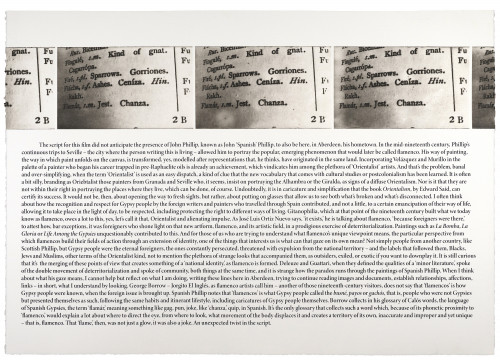 gnat.
Kind of gnat.
Fu
Sparrows. Gorriones.
Hin.
Ashes. Ceniza. Hin.
Jest. Chanza.
2 B
Kind of gnat.
Fu
Sparrows. Gorriones.
Ashes. Ceniza. Hin.
Jest. Chanza.
2 B
Kind of gnat.
Sparrows. Gorriones.
Ashes. Ceniza.
Jest. Chanza.
2 B
The script for this film did not anticipate the presence of John Phillip, known as John 'Spanish' Phillip, to also be here, in Aberdeen, his hometown. In the mid-nineteenth century, Phillip's
continuous trips to Seville – the city where the person writing this is living – allowed him to portray the popular, emerging phenomenon that would later be called flamenco. His way of painting,
the way in which paint unfolds on the canvas, is transformed, yes, modelled after representations that, he thinks, have originated in the same land. Incorporating Velázquez and Murillo in the
palette of a painter who began his career trapped in pre-Raphaelite oils is already an achievement, which vindicates him among the plethora of 'Orientalist' artists. And that's the problem, banal
and over-simplifying, when the term 'Orientalist' is used as an easy dispatch, a kind of cliché that the new vocabulary that comes with cultural studies or postcolonialism has been learned. It is often
a bit silly, branding as Orientalist those painters from Granada and Seville who, it seems, insist on portraying the Alhambra or the Giralda, as signs of a diffuse Orientalism. Nor is it that they are
not within their right in portraying the places where they live, which can be done, of course. Undoubtedly, it is in caricature and simplification that the book Orientalism, by Edward Said, can
certify its success. It would not be, then, about opening the way to fresh sights, but rather, about putting on glasses that allow us to see both what's broken and what's disconnected. I often think
about how the recognition and respect for Gypsy people by the foreign writers and painters who travelled through Spain contributed, and not a little, to a certain emancipation of their way of life,
allowing it to take its place in the light of day, to be respected, including protecting the right to different ways of living. Gitanophilia, which at that point of the nineteenth century built what we today
know as flamenco, owes a lot to this, yes, let's call it that, Orientalist and alienating impulse. As José Luis Ortiz Nuevo says, 'it exists', he is talking about flamenco, 'because foreigners were there',
to attest how, but exceptions, it was foreigners who shone light on that new artform, flamenco, and its artistic field, in a prodigious exercise of deterritorialization. Paintings such as La Bomba, La
Gloria or Life Among the Gypsies unquestionably contributed to this. And for those of us who are trying to understand what flamenco's unique viewpoint means, the particular perspective from
which flamencos build their fields of action through an extension of identity, one of the things that interests us is what can that gaze on its own mean? Not simply people from another country, like
Scottish Phillip, but Gypsy people were the eternal foreigners, the ones constantly persecuted, threatened with expulsion from the national territory – and the labels that followed them, Blacks,
Jews and Muslims, other terms of the Orientalist kind, not to mention the plethora of strange looks that accompanied them, as outsiders, exiled, or exotic if you want to downplay it. It is still curious
that it's the merging of these points of view that creates something of a 'national identity', as flamenco is formed. Deleuze and Guattari, when they defined the qualities of a 'minor literature', spoke
of the double movement of deterritorialization and spoke of community, both things at the same time, and it is strange how the paradox runs through the paintings of Spanish Phillip. When I think
about what his gaze means, I cannot help but reflect on what I am doing, writing these lines here in Aberdeen, trying to continue reading images and documents, establish relationships, affinities,
links – in short, what I understand by looking. George Borrow – Jorgito El Inglés, as flamenco artists call him – another of those nineteenth-century visitors, does not say that 'flamencos' is how
Gypsy people were known, when the foreign issue is brought up. Spanish Phillip notes that 'flamencos' is what Gypsy people called the busné, payos or gachós, that is, people who were not Gypsies
but presented themselves as such, following the same habits and itinerant lifestyle, including caricatures of Gypsy people themselves. Borrow collects in his glossary of Calós words, the language
of Spanish Gypsies, the term 'flama', meaning something like gag, pun, joke, like 'chanza', quip, in Spanish. It's the only glossary that collects such a word which, because of its phonetic proximity to
'flamenco,' would explain a lot about where to direct the eye, from where to look, what movement of the body displaces it and creates a territory of its own, inaccurate and improper and yet unique
– that is, flamenco. That 'flama', then, was not just a glow, it was also a joke. An unexpected twist in the script.